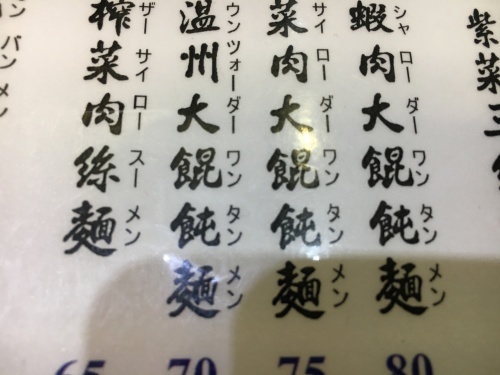 紫菜三
蝦肉大餛飩麵
シャローダーワンタンメン
80
菜肉大餛飩麵
サイローダーワンタンメン
75
温州大餛飩麵
ウンツォーダーワンタンメン
70
榨菜肉絲麵
ザーサイロースーメン
65
ンバンメン